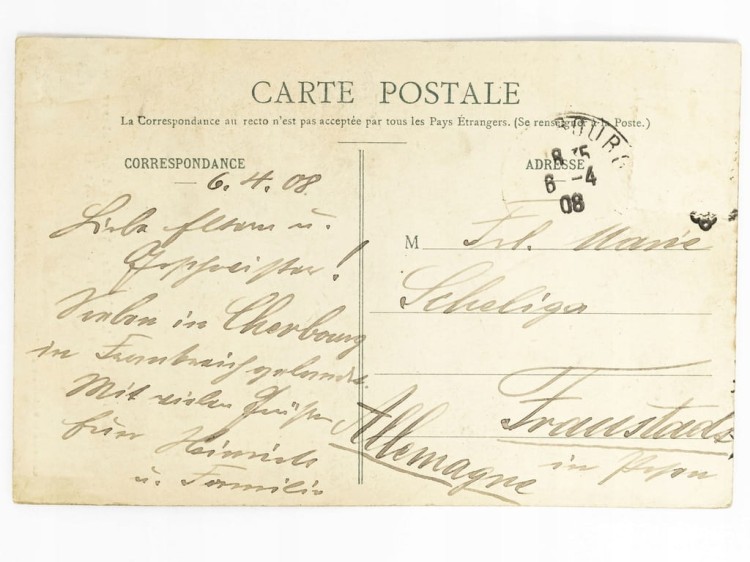 CARTE POSTALE
La Correspondance au recto n'est pas acceptée par tous les Pays Étrangers. (Se renseigner à la Poste.)
CORRESPONDANCE
6. 4. 08.
Liebe Eltern u.
Geschwister!
Soeben in Cherbourg
in Frankreich gelandet.
Mit vielen Grüßen
Euer Heinrich
u. Familie
ADRESSE
BOURG
8 15
6 -4
08
M Frl. Marie
Scheliga
Fraustadt
in Posen
Allemagne